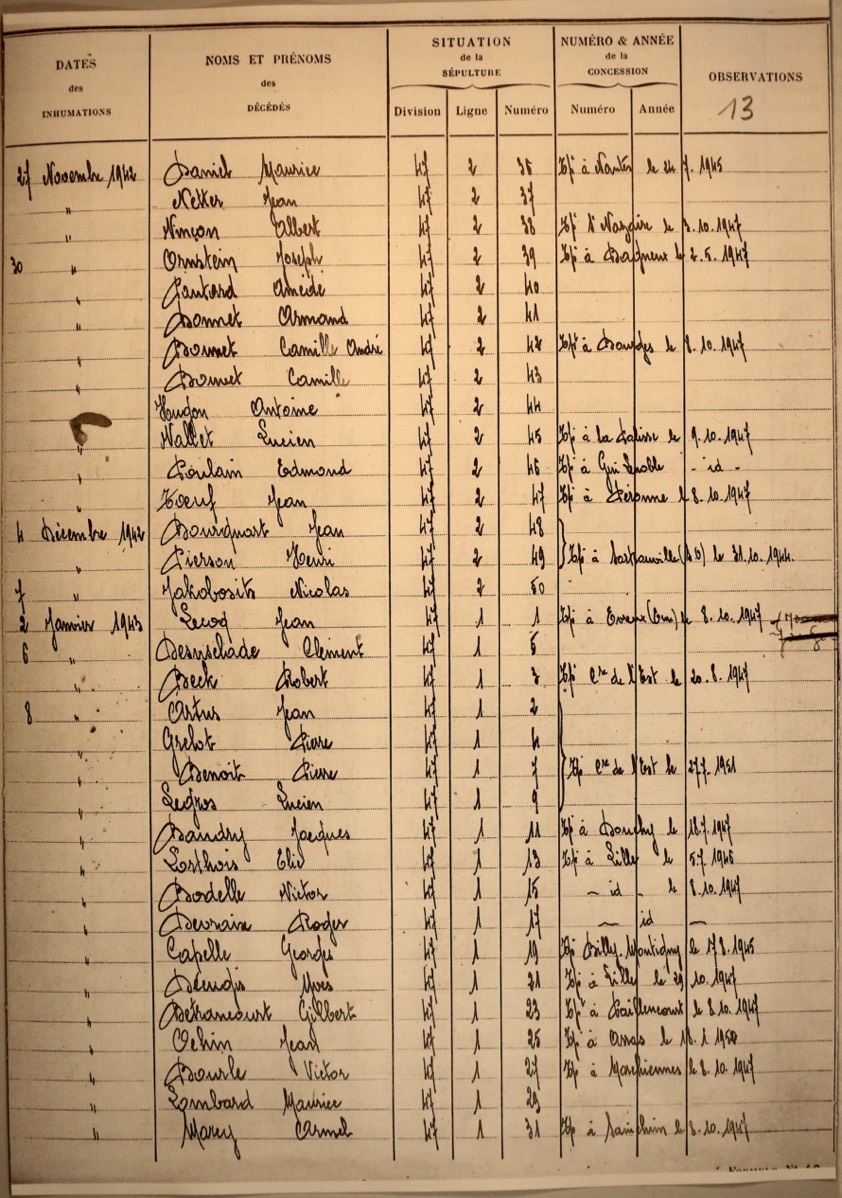 DATES des INHUMATIONS
NOMS ET PRÉNOMS des DÉCÉDÉS
SITUATION de la SÉPULTURE
NUMÉRO & ANNÉE de la CONCESSION
OBSERVATIONS
13
Division Ligne Numéro Numéro Année
27 Novembre 1942 Daniel Maurice 47 2 36 Tfé à Nantes le 24 7. 1945
" Netter Jean 47 2 37
" Ninçon Albert 47 2 38 Tfé St Nazaire le 3.10.1947
30 " Ornstein Joseph 47 2 39 Tfé à Bagneux le 2.5.1947
" Pautard Amédé 47 2 40
" Bonnet Armand 47 2 41
" Bonnet Camille André 47 2 42 Tfé à Bourges le 8.10.1947
" Bonnet Camille 47 2 43
Houdon Antoine 47 2 44
" Nallet Lucien 47 2 45 Tfé à la Palisse le 9.10.1947
" Poulain Edmond 47 2 46 Tfé à - id -
" Toeuf Jean 47 2 47 Tfé à Péronne le 8.10.1947
4 Décembre 1942 Bourquart Jean 47 2 48
" Pierson Henri 47 2 49 Tfé à Sartrouville (S O) le 31.10.1944.
7 " Jakobosits Nicolas 47 2 50
2 Janvier 1943 Lecoq Jean 47 1 1 Tfé à Evreux (Eure) le 8.10.1947
6 " Desnschade Clément 47 1 5
" Beck Robert 47 1 3 Tfé Cre de l'Est le 20.8.1947
8 " Artus Jean 47 1 2
" Grelot Pierre 47 1 4
" Benoit Pierre 47 1 7 Tfé Cre de l'Est le 27.7.1951
" Legros Lucien 47 1 9
" Baudry Jacques 47 1 11 Tfé à Douchy le 18.7.1947
" Losthois Elie 47 1 13 Tfé à Lille le 5.7.1946
" Bodelle Victor 47 1 15 - id - le 8.10.1947
" Devraine Roger 47 1 17 - id -
" Capelle Georges 47 1 19 Tfé Billy-Montigny le 17.8.1945
" Yves 47 1 21 Tfé à Lille le 29 10.1947
" Détrancourt Gilbert 47 1 23 Tfé à Paillencourt le 8.10.1947
" Ochin Jean 47 1 25 Tfé à Arras le 18.1.1950
" Bourle Victor 47 1 27 Tfé à Marchiennes le 8.10.1947
" Lombard Maurice 47 1 29
" Marcy Carmel 47 1 31 Tfé à Sainghin le 8.10.1947